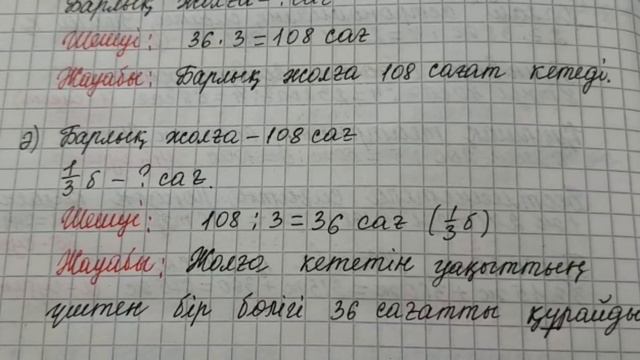 Барлық жолға - ? сағ
Шешуі: 36 · 3 = 108 сағ
Жауабы: Барлық жолға 108 сағат кетеді.
ә) Барлық жолға - 108 сағ
1/3 б - ? сағ.
Шешуі: 108 : 3 = 36 сағ (1/3 б)
Жауабы: Жолға кететін уақыттың
үштен бір бөлігі 36 сағатты құрайды